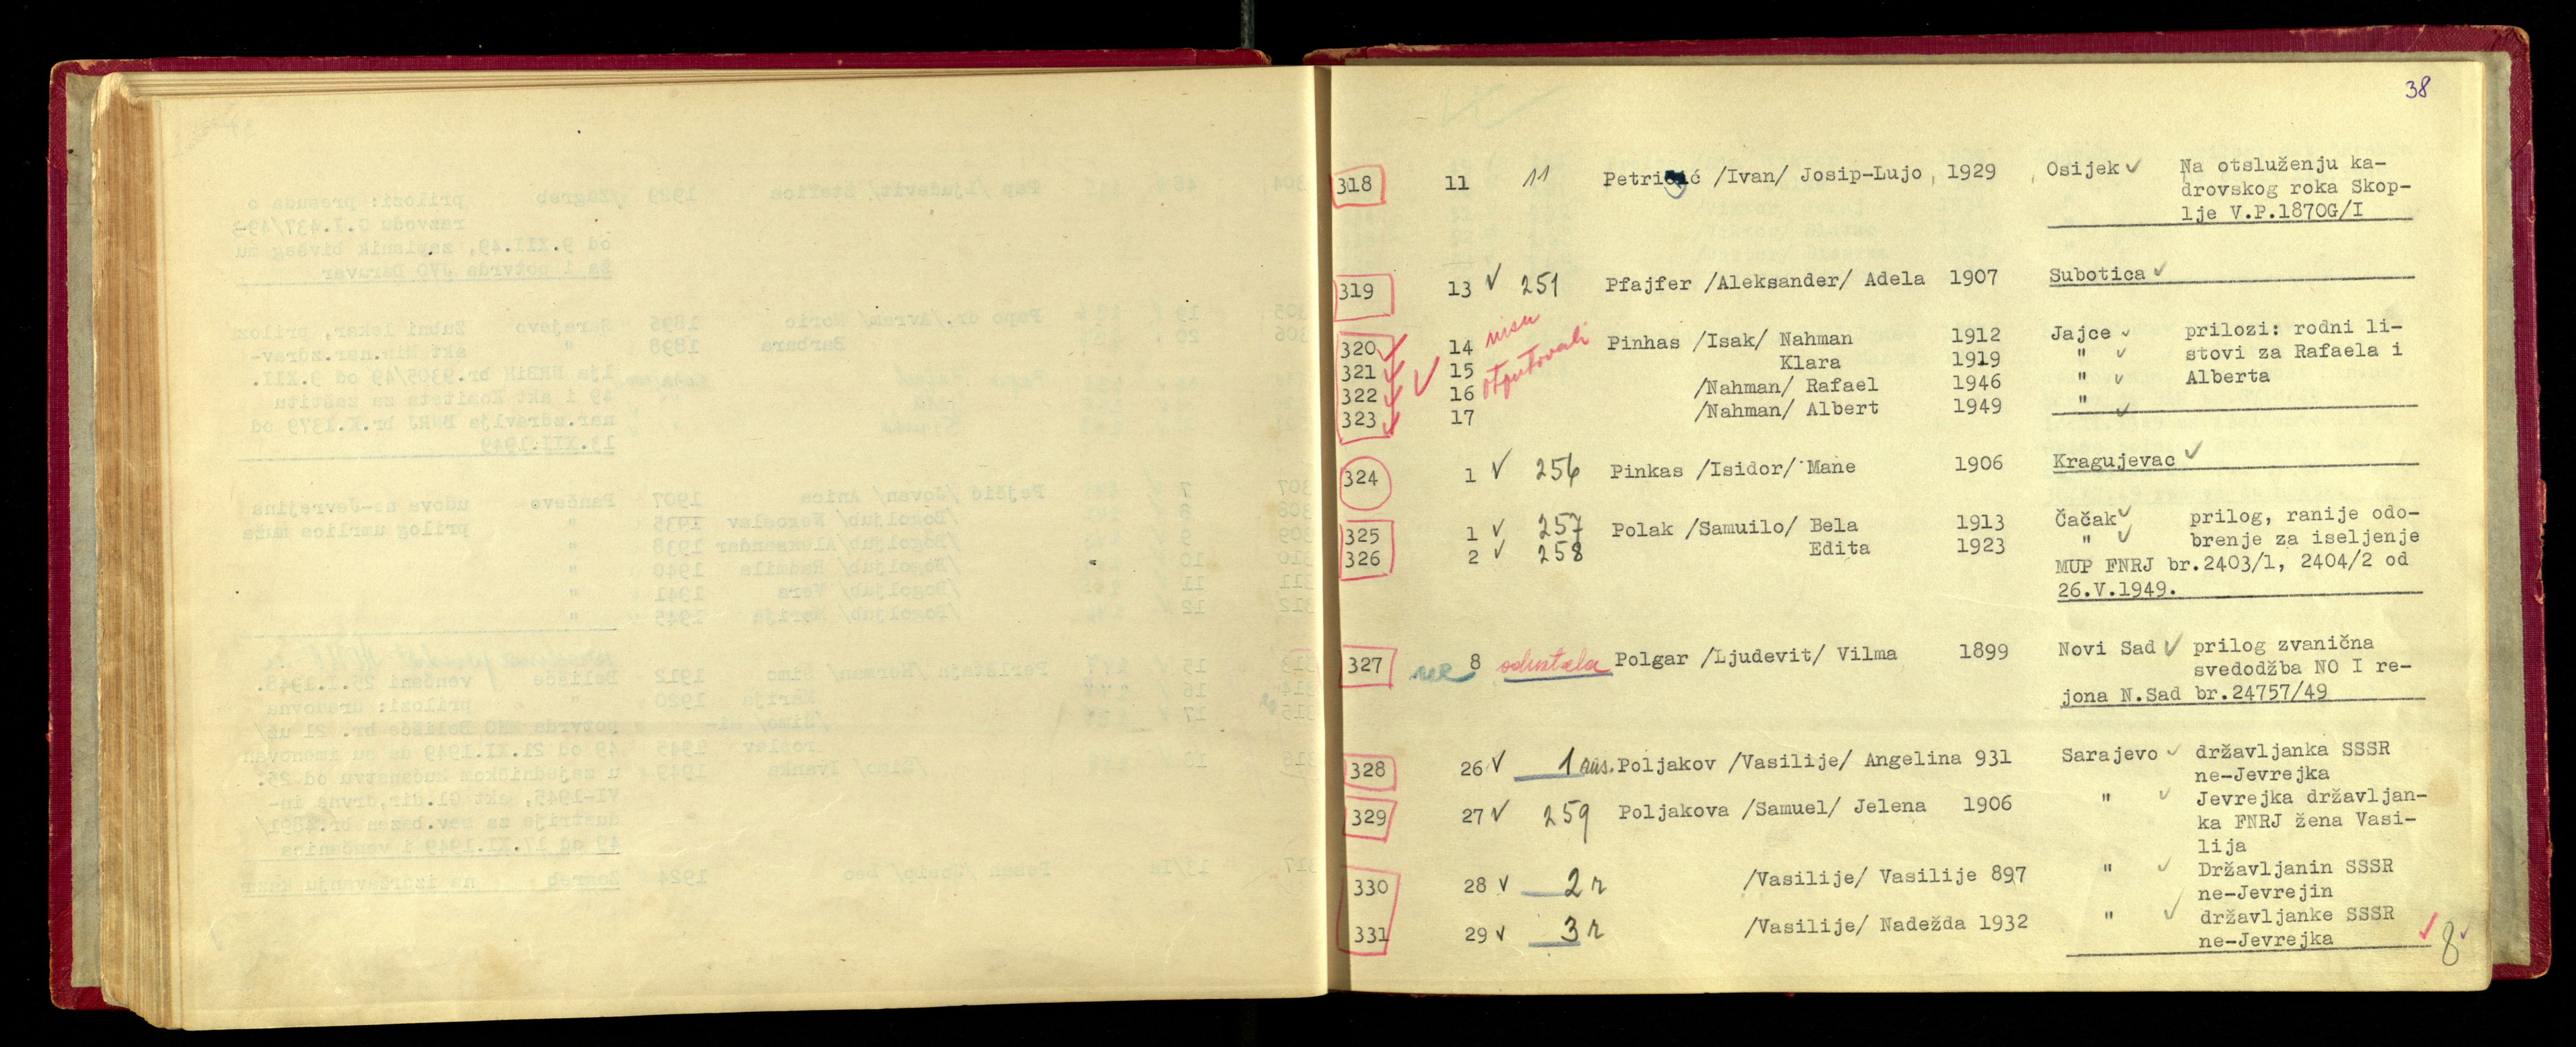 38
318 11 11 Petričić /Ivan/ Josip-Lujo 1929 Osijek ✓ Na otsluženju ka-
drovskog roka Skop-
lje V.P.1870G/I
319 13 ✓ 251 Pfajfer /Aleksander/ Adela 1907 Subotica ✓
nisu otputovali
320 ✓ 14 Pinhas /Isak/ Nahman 1912 Jajce ✓ prilozi: rodni li-
321 ✓ 15 Klara 1919 " ✓ stovi za Rafaela i
322 ✓ 16 /Nahman/ Rafael 1946 " ✓ Alberta
323 ✓ 17 /Nahman/ Albert 1949 " ✓
324 1 ✓ 256 Pinkas /Isidor/ Mane 1906 Kragujevac ✓
325 1 ✓ 257 Polak /Samuilo/ Bela 1913 Čačak ✓ prilog, ranije odo-
326 2 ✓ 258 Edita 1923 " ✓ brenje za iseljenje
MUP FNRJ br.2403/1, 2404/2 od
26.V.1949.
327 ne 8 odustala Polgar /Ljudevit/ Vilma 1899 Novi Sad ✓ prilog zvanična
svedodžba NO I re-
jona N.Sad br.24757/49
328 26 ✓ 1 Poljakov /Vasilije/ Angelina 931 Sarajevo ✓ državljanka SSSR
ne-Jevrejka
329 27 ✓ 259 Poljakova /Samuel/ Jelena 1906 " ✓ Jevrejka državljan-
ka FNRJ žena Vasi-
lija
330 28 ✓ 2 r /Vasilije/ Vasilije 897 " ✓ Državljanin SSSR
ne-Jevrejin
331 29 ✓ 3 r /Vasilije/ Nadežda 1932 " ✓ državljanke SSSR
ne-Jevrejka ✓ 8 ✓